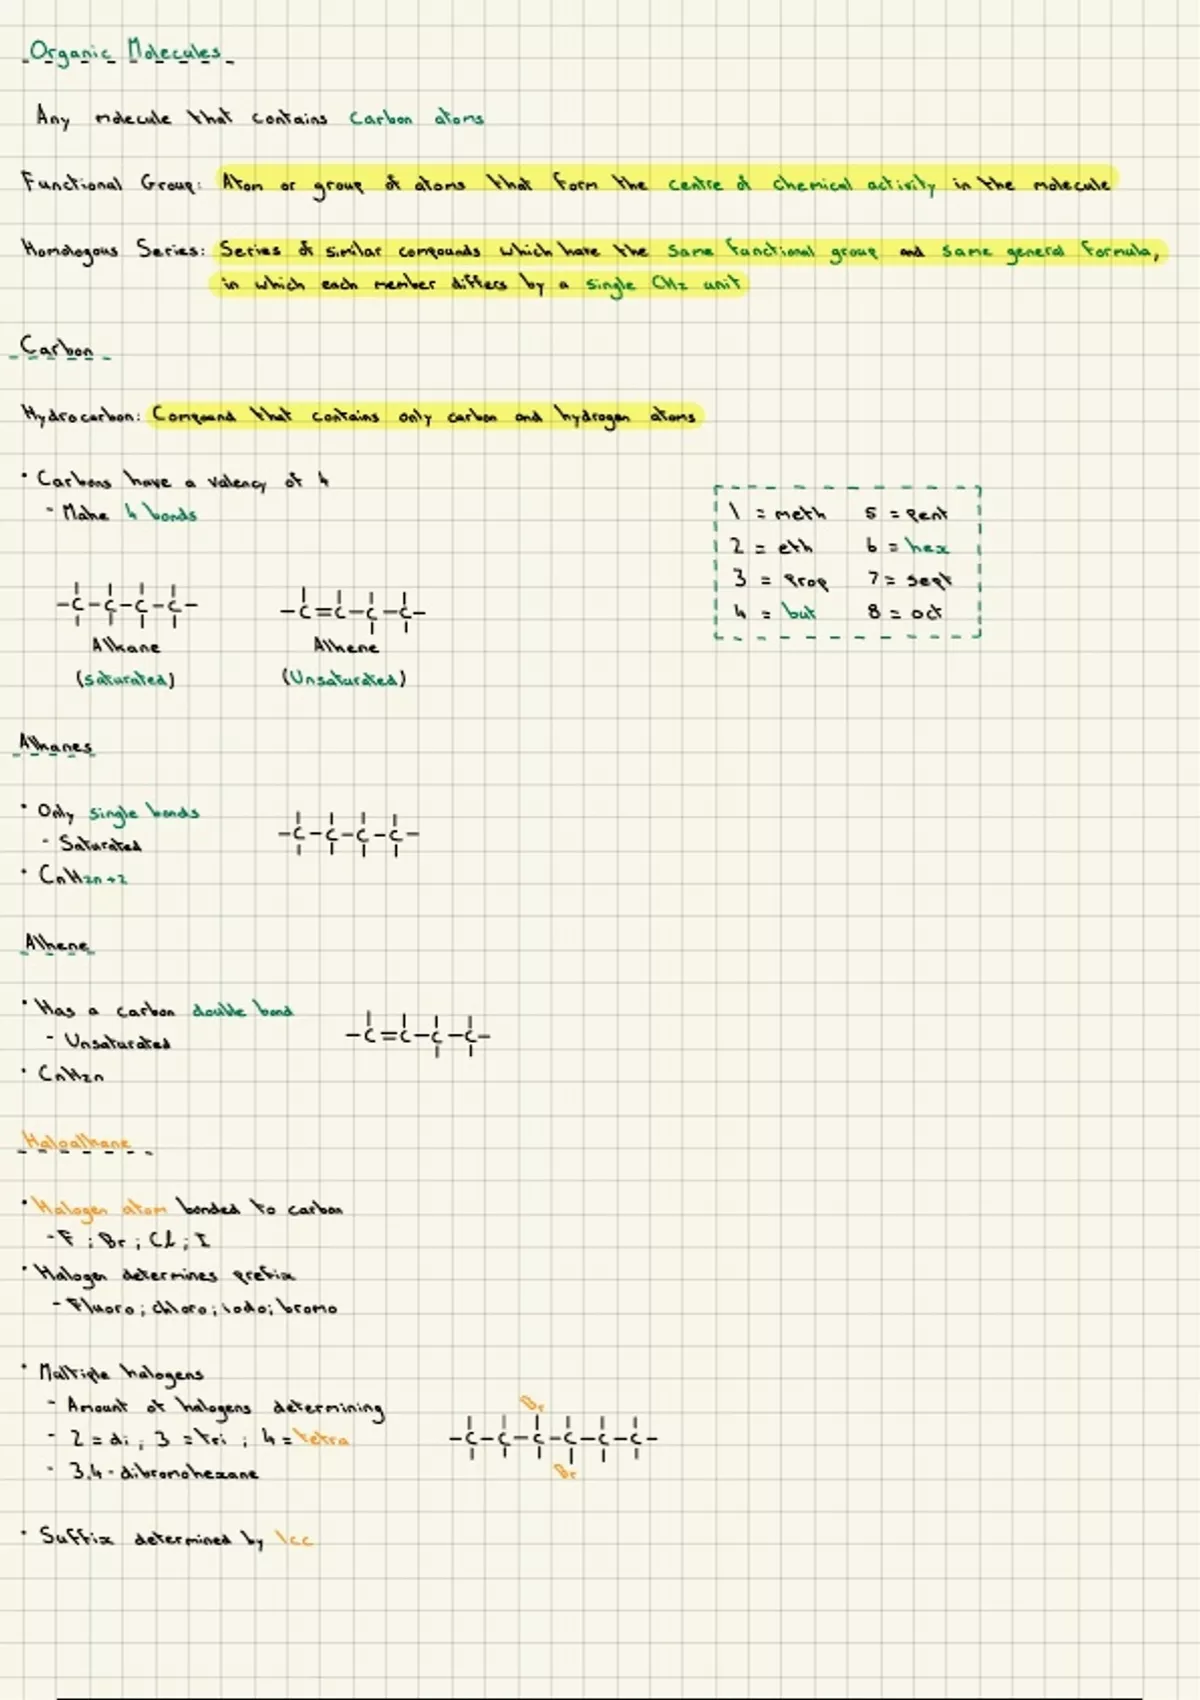 Organic Molecules
Any molecule that contains Carbon atoms
Functional Group: Atom or group of atoms that form the centre of chemical activity in the molecule
Homologous Series: Series of similar compounds which have the same functional group and same general formula,
in which each member differs by a single CH₂ unit
Carbon
Hydrocarbon: Compound that contains only carbon and hydrogen atoms
• Carbons have a valency of 4
- Make 4 bonds
1 = meth 5 = pent
2 = eth 6 = hex
3 = prop 7 = sept
4 = but 8 = oct
-C-C-C-C- -C=C-C-C-
Alkane Alkene
(saturated) (Unsaturated)
Alkanes
• Only single bonds
- Saturated
-C-C-C-C-
• CnH2n+2
Alkene
• Has a carbon double bond
- Unsaturated
-C=C-C-C-
• CnH2n
Haloalkane
• Halogen atom bonded to carbon
- F ; Br ; Cl ; I
• Halogen determines prefix
- Fluoro ; chloro ; iodo ; bromo
• Multiple halogens
- Amount of halogens determining
- 2 = di ; 3 = tri ; 4 = tetra
- 3,4 - dibromohexane
Br
-C-C-C-C-C-C-
Br
• Suffix determined by lcc